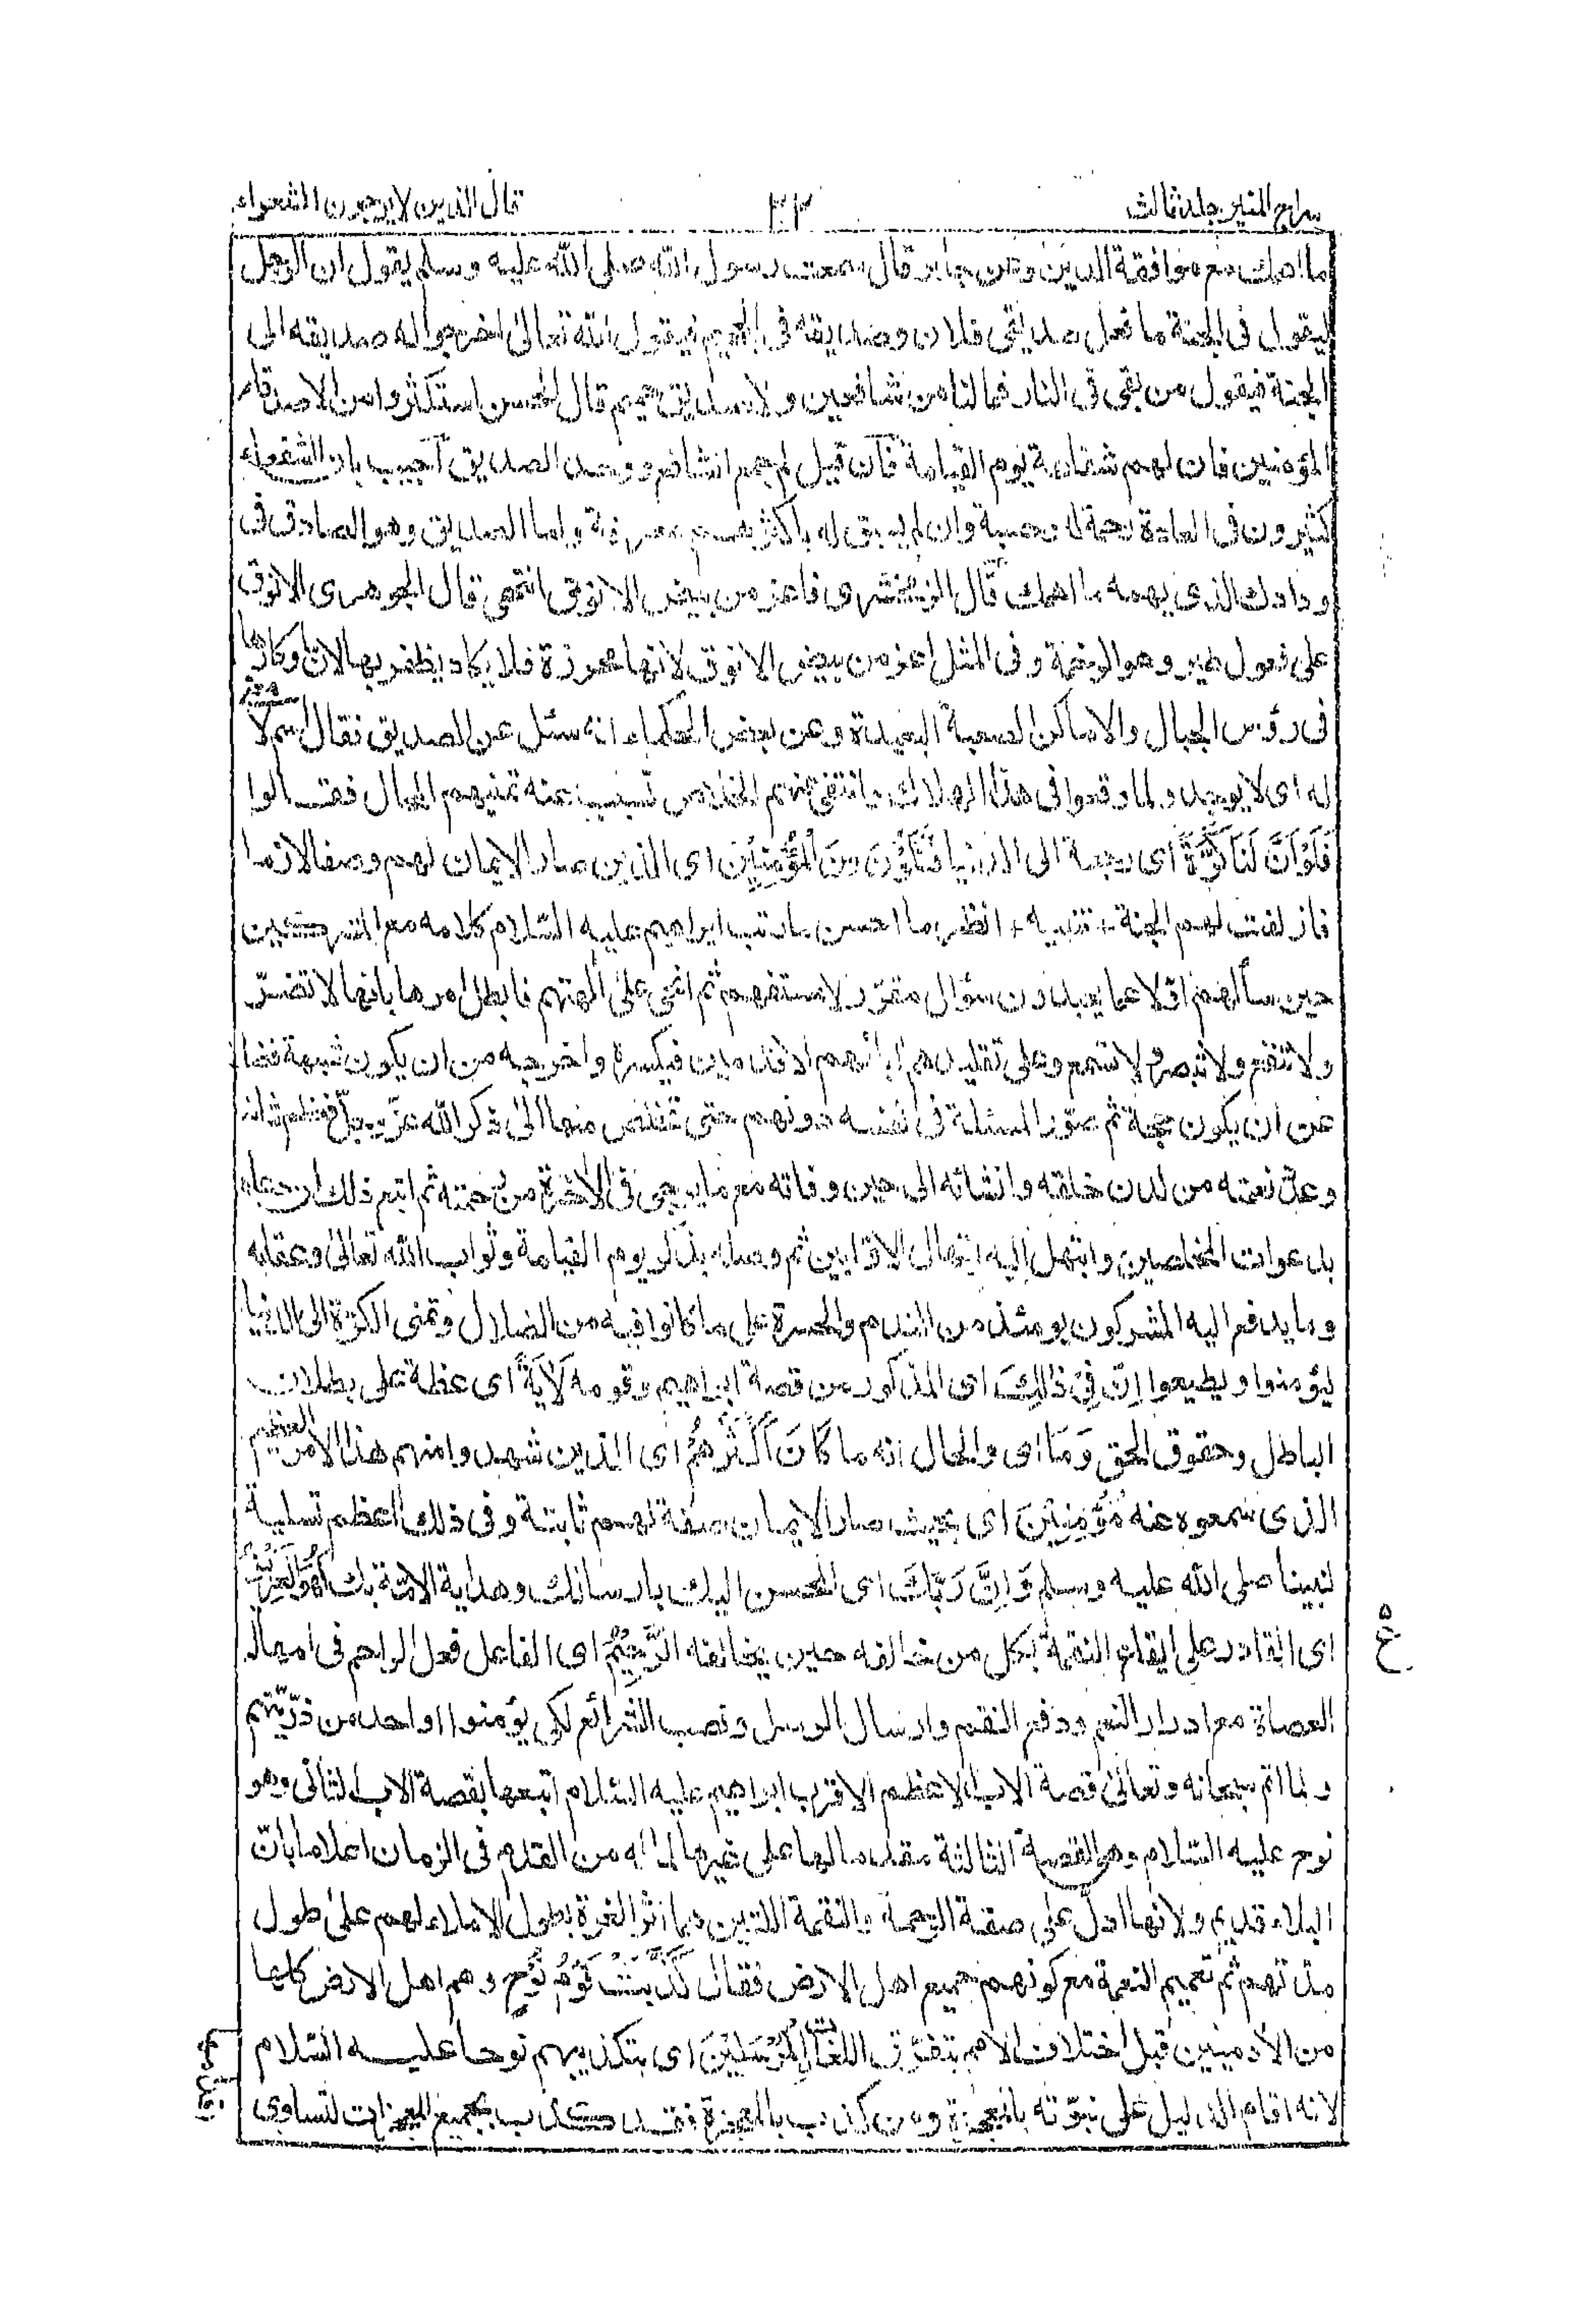 سراج المنير جلد ثالث
٣٣
قال الذين لايرجون الشعراء
ما اهمك مع موافقة الدين وعن جابر قال سمعت رسول الله صلى الله عليه وسلم يقول ان الرجل
ليقول فى الجنة ما فعل صديقى فلان وصديقه فى الجحيم فيقول الله تعالى اخرجوا له صديقه الى
الجنة فيقول من بقى فى النار فمالنا من شافعين ولا صديق حميم قال الحسن استكثروا من الاصدقاء
المؤمنين فان لهم شفاعة يوم القيامة فان قيل لم جمع الشافع ووحد الصديق اجيب بان الشفعاء
كثيرون فى العادة رحمة له وحسبة وان لم يسبق له باكثرهم معرفة واما الصديق وهو الصادق فى
ودادك الذى يهمه ما اهمك قال الزمخشرى فاعز من بيض الانوق انتهى قال الجوهرى الانوق
على فعول طير وهو الرخمة وفى المثل اعز من بيض الانوق لانها تحرزه فلا يكاد يظفر بها لان اوكارها
فى رؤس الجبال والاماكن الصعبة البعيدة وعن بعض الحكماء انه سئل عن الصديق فقال اسم لا
له اى لا يوجد ولما وقعوا فى هذا الهلاك وانتفى عنهم الخلاص تسبب عنه تمنيهم المحال فقالوا
فَلَوْ اَنَّ لَنَا كَرَّةً اى رجعة الى الدنيا فَنَكُوْنَ مِنَ الْمُؤْمِنِيْنَ اى الذين صار الايمان لهم وصفا لازما
فازلفت لهم الجنة + تنبيه + انظر ما احسن ما رتب ابراهيم عليه السلام كلامه مع المشركين
حين سألهم اولا عما يعبدون سؤال مقرر لا مستفهم ثم انحى على آلهتهم فابطل امرها بانها لا تضر
ولا تنفع ولا تبصر ولا تسمع وعلى تقليدهم آبائهم الاقدمين فكسره واخرجه من ان يكون شبهة فضلا
عن ان يكون حجة ثم صور المسئلة فى نفسه دونهم حتى تخلص منها الى ذكر الله عز وجل فعظم شانه
وعد نعمته من لدن خلقه وانشائه الى حين وفاته مع ما يرجى فى الآخرة من رحمته ثم اتبع ذلك ان دعاه
بدعوات المخلصين وابتهل اليه ابتهال الاوابين ثم وصله بذكر يوم القيامة وثواب الله تعالى وعقابه
وما يدفع اليه المشركون يومئذ من الندم والحسرة على ما كانوا فيه من الضلال وتمنى الكرة الى الدنيا
ليؤمنوا ويطيعوا اِنَّ فِىْ ذٰلِكَ اى المذكور من قصة ابراهيم وقومه لَاٰيَةً اى عظة على بطلان
الباطل وحقوق الحق وَمَا اى والحال انه ما كَانَ اَكْثَرُهُمْ اى الذين شهدوا منهم هذا الامر العظيم
الذى سمعوه عنه مُؤْمِنِيْنَ اى بحيث صار الايمان صفة لهم ثابتة وفى ذلك اعظم تسلية
لنبينا صلى الله عليه وسلم وَاِنَّ رَبَّكَ اى المحسن اليك بارسالك وهداية الامة بك لَهُوَ الْعَزِيْزُ
اى القادر على ايقاع النقمة بكل من خالفه حين يخالفه الرَّحِيْمُ اى الفاعل فعل الراحم فى امهال
العصاة مع ادرار النعم ودفع النقم وارسال الرسل ونصب الشرائع لكى يؤمنوا او احد من ذريتهم
ولما اتم سبحانه وتعالى قصة الاب الاعظم الاقرب ابراهيم عليه السلام اتبعها بقصة الاب الثانى وهو
نوح عليه السلام وهى القصة الثالثة مقدما لها على غيرها لما له من القدم فى الزمان اعلاما بان
البلاء قديم ولانها ادل على صفة الرحمة والنقمة اللتين هما اثر العزة بطول الاملاء لهم على طول
مدتهم ثم تعميم النقمة مع كونهم جميع اهل الارض فقال كَذَّبَتْ قَوْمُ نُوْحٍ وهم اهل الارض كلها
من الآدميين قبل اختلاف الامم بتفرق اللغات الْمُرْسَلِيْنَ اى بتكذيبهم نوحا عليه السلام
لانه اقام الدليل على نبوته بالمعجزة ومن كذب بالمعجزة فقد كذب بجميع المعجزات لتساوى
٥
ع